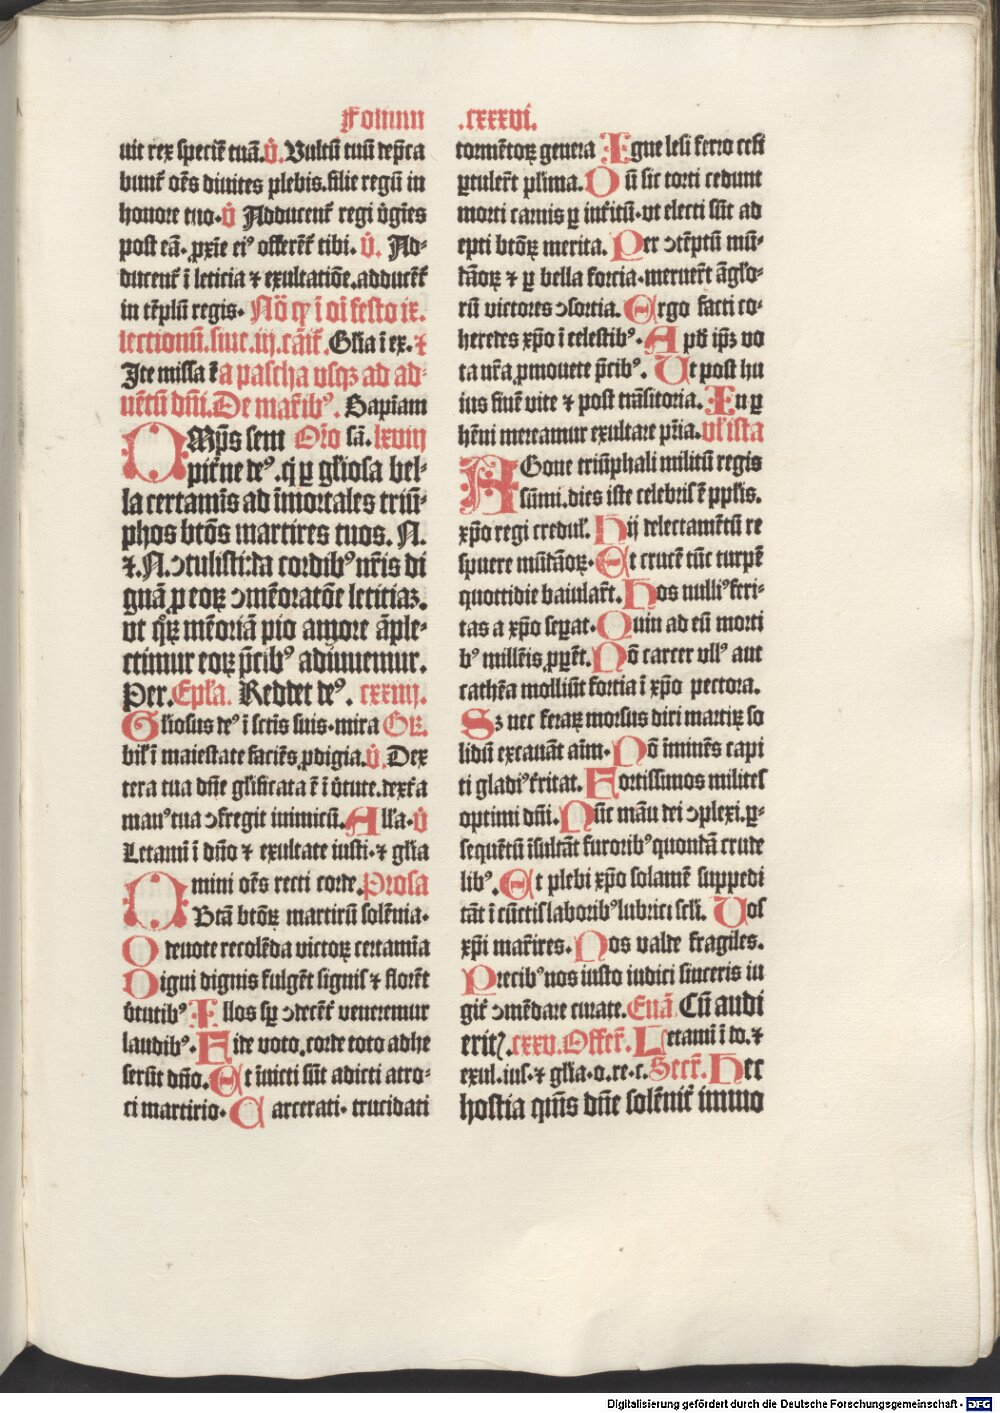 Folium .cxxxvi.
uit rex speciē tuā. v̇. Vultū tuū dep̄ca
bunt᷑ oēs diuites plebis. filie regū in
honore tuo. v̇ Adducent᷑ regi v̇gīes
post eā. ꝓxīe eiꝰ offerēt᷑ tibi. v̇. Ad-
ducent᷑ ī leticia ⁊ exultatiōe. adducēt᷑
in tēplū regis.
lectionū. siue .iij. Gl̄ia ī ex. ⁊
Ite missa ē a pascha vsqꝫ ad ad-
uētū dn̄i. De mar̄ibꝰ. Sapīam
OMp̄s sem Or̄o sā. lxviij
pit̄ne deꝰ .q̇ ꝑ gl̄iosa bel-
la certamīs ad īmortales triū-
phos btōs martires tuos. N.
⁊. N. ↄtulisti: da cordibꝰ nr̄is di
gnā ꝓ eoꝝ ↄmēoratōe leticiaꝫ.
vt qͦꝝ mēoriā pio amore āple-
ctimur eoꝝ p̄cibꝰ adiuuemur.
Per. Ep̄l̄a. Reddet deꝰ. cxxiiij.
Gl̄iosus deꝰ ī sctīs suis. mira Gr̄.
bil᷑ ī maiestate faciēs ꝓdigia. v̇. Dex
tera tua dn̄e gl̄ificata ē ī v̇tute. dext᷑a
manꝰ tua ↄfregit inimicū. All̄a. v̇
Letamī ī dn̄o ⁊ exultate iusti. ⁊ gl̄ia
mini oēs recti corde. Prosa
O Btā btōꝝ martirū solēnia.
O deuote recolēda victoꝝ certamīa
Digni dignis fulgēt signis ⁊ florēt
v̇tutibꝰ Illos sꝑ ↄdecēt᷑ veneremur
laudibꝰ. Fide voto. corde toto adhe
serūt dn̄o. Et īuicti sūt adicti atro-
ci martirio. Carcerati. trucidati
tormētoꝝ genera Igne lesi ferro cesi
ꝑtulert᷑ pl᷑ima. Dū sic torti cedunt
morti carnis ꝑ int᷑itū. vt electi sūt ad
epti btōꝝ merita. Per ↄtēptū mū-
dāoꝝ ⁊ ꝑ bella forcia. meruert᷑ āgl̄o-
rū victores ↄsortia. Ergo facti co-
heredes xp̄o ī celestibꝰ. Apd̄ ip̄ꝫ vo
ta nr̄a ꝓmouete p̄cibꝰ. Ut post hu
ius finē vite ⁊ post trāsitoria. In ꝑ
hēni mereamur exultare pr̄ia. vl᷑ ista
AGone triūphali militū regis
sūmi. dies iste celebris ē pp̄lis.
xp̄o regi credul᷑. Hij delectamētū re
spuere mūdāoꝝ. Et crucē tūc turpē
quottidie baiulart᷑. Hos nulliꝰ feri-
tas a xp̄o seꝑat. Quin ad eū morti
bꝰ millēis ꝓꝑēt. Nō carcer vllꝰ aut
cathēa molliūt fortia ī xp̄o pectora.
Sꝫ nec feraꝝ morsus diri martiꝝ so
lidū excauāt aīm. Nō īminēs capi
ti gladiꝰ t᷑ritat. Fortissimos milites
optimi dn̄i. Nūc manū dei ↄplexi. ꝑ-
sequētū īsultāt furoribꝰ quondā crude
libꝰ. Et plebi xp̄o solamē suppedi
tāt ī cūctis laboribꝰ lubrici scl᷑i. Uos
xp̄i mar̄ires. Nos valde fragiles.
Precibꝰ nos iusto iudici sinceris iu
git᷑ ↄmēdare curate. Euā. Cū audi
eritꝭ. cxxv. Offer᷑. Letamī ī do. ⁊
exul. ius. ⁊ gl̄ia. o. re. c. Secr᷑. Hec
hostia qm̄s dn̄e solēnit᷑ immo
Digitalisierung gefördert durch die Deutsche Forschungsgemeinschaft - DFG